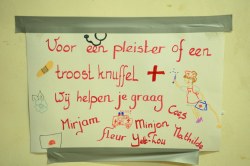 Voor een pleister of een
troost knuffel +
Wij helpen je graag
Cees
Mirjam Minjon Mathilde
fleur